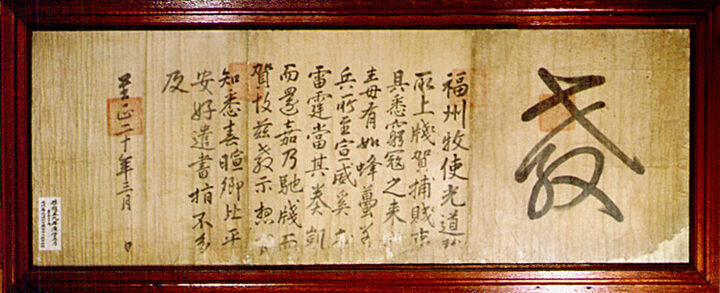 教
福州牧使光道省
所上牋賀捕賊事
具悉窮寇之來
毒有如蜂蠆官
兵所至宣威奚啻
雷霆當其奏凱
而還嘉乃馳牋而
賀故茲教示想宜
知悉春暄卿比平
安好遣書指不多
及
至正二十年三月 日